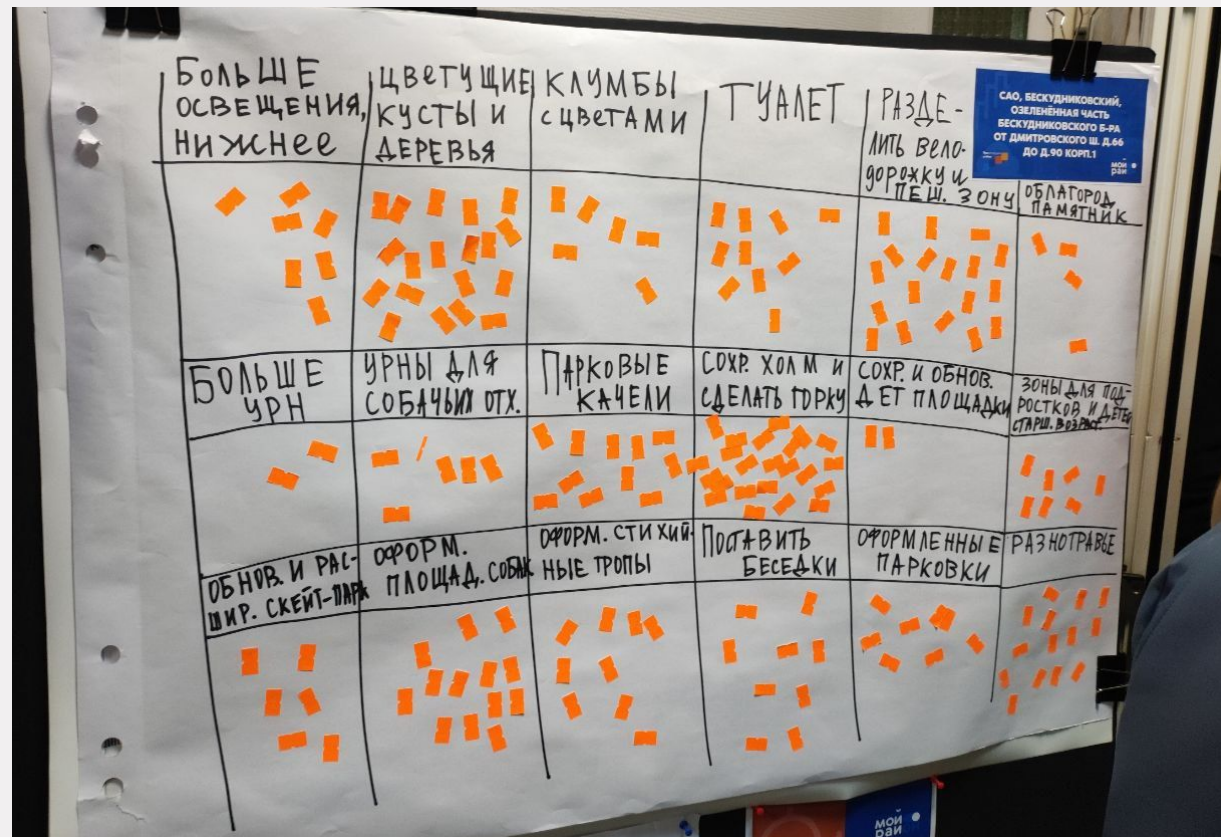 БОЛЬШЕ
ОСВЕЩЕНИЯ,
НИЖНЕЕ
ЦВЕТУЩИЕ
КУСТЫ И
ДЕРЕВЬЯ
КЛУМБЫ
С ЦВЕТАМИ
ТУАЛЕТ
РАЗДЕ-
ЛИТЬ ВЕЛО-
ДОРОЖКУ И
ПЕШ. ЗОНУ
САО, БЕСКУДНИКОВСКИЙ,
ОЗЕЛЕНЁННАЯ ЧАСТЬ
БЕСКУДНИКОВСКОГО Б-РА
ОТ ДМИТРОВСКОГО Ш. Д.66
ДО Д.90 КОРП.1
МОЙ
РАЙ
ОБЛАГОРОД
ПАМЯТНИК
БОЛЬШЕ
УРН
УРНЫ ДЛЯ
СОБАЧЬИХ ОТХ.
ПАРКОВЫЕ
КАЧЕЛИ
СОХР. ХОЛМ И
СДЕЛАТЬ ГОРКУ
СОХР. И ОБНОВ.
ДЕТ ПЛОЩАДКИ
ЗОНЫ ДЛЯ ПОД-
РОСТКОВ И ДЕТЕЙ
СТАРШ. ВОЗРАСТ
ОБНОВ. И РАС-
ШИР. СКЕЙТ-ПАРК
ОФОРМ.
ПЛОЩАД. СОБАК
ОФОРМ. СТИХИЙ-
НЫЕ ТРОПЫ
ПОСТАВИТЬ
БЕСЕДКИ
ОФОРМЛЕННЫЕ
ПАРКОВКИ
РАЗНОТРАВЬЕ
МОЙ
РАЙ